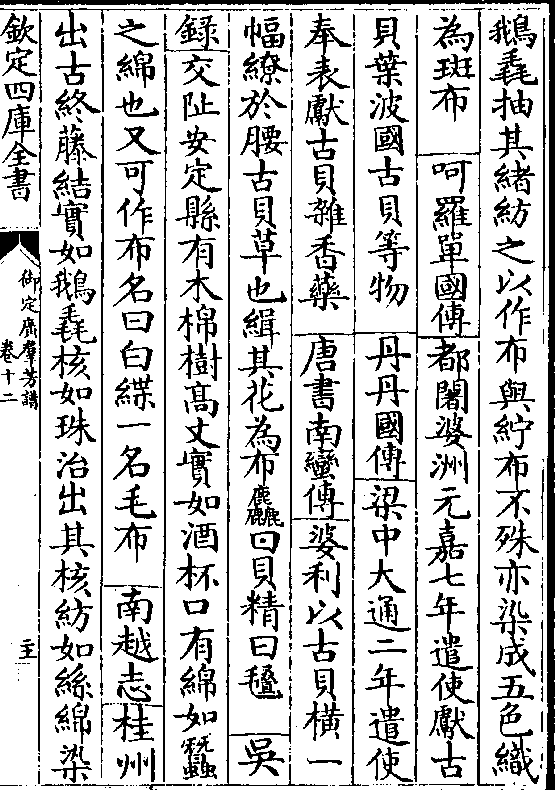 鵝毳抽其緒紡之以作布與紵布不殊亦染成五色織
為斑布　呵羅單國傳都闍婆洲元嘉七年遣使獻古
貝葉波國古貝等物　丹丹國傳梁中大通二年遣使
奉表獻古貝雜香藥　唐書南蠻傳婆利以古貝橫一
幅繚於腰古貝草也緝其花為布麤曰貝精曰㲲　吳
録交阯安定縣有木棉樹高丈實如酒杯口有綿如蠶
之綿也又可作布名曰白緤一名毛布　南越志桂州
出古終藤結實如鵝毳核如珠治出其核紡如絲綿染
欽定四庫全書
御定廣羣芳譜
卷十二